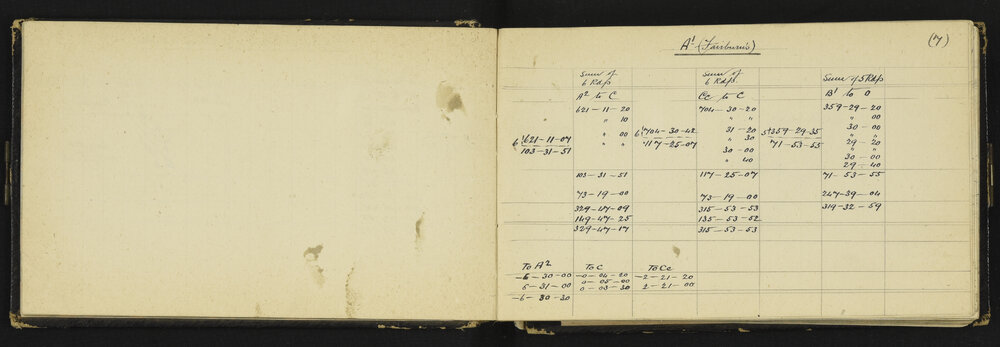 A¹ (Fairburn's) (7)
Sum of 6 Rdgs Sum of 6 Rdgs. Sum of 5 Rdgs
A² to C Cc to C B¹ to O
621-11-20 704-30-20 359-29-20
" " 10 " " " 00
6)621-11-07 " " 00 6)704-30-42 31-20 5)359-29-35 30-00
103-31-51 " " " 117-25-07 " 30 71-53-55 29-20
30-00 30-00
" 40 29-40
103-31-51 117-25-07 71-53-55
73-19-00 73-19-00 247-39-04
329-47-09 315-53-53 319-32-59
149-47-25 135-53-52
329-47-17 315-53-53
To A² To C To Cc
-6-30-00 -0-04-20 -2-21-20
6-31-00 0-05-00 2-21-00
-6-30-30 0-03-30